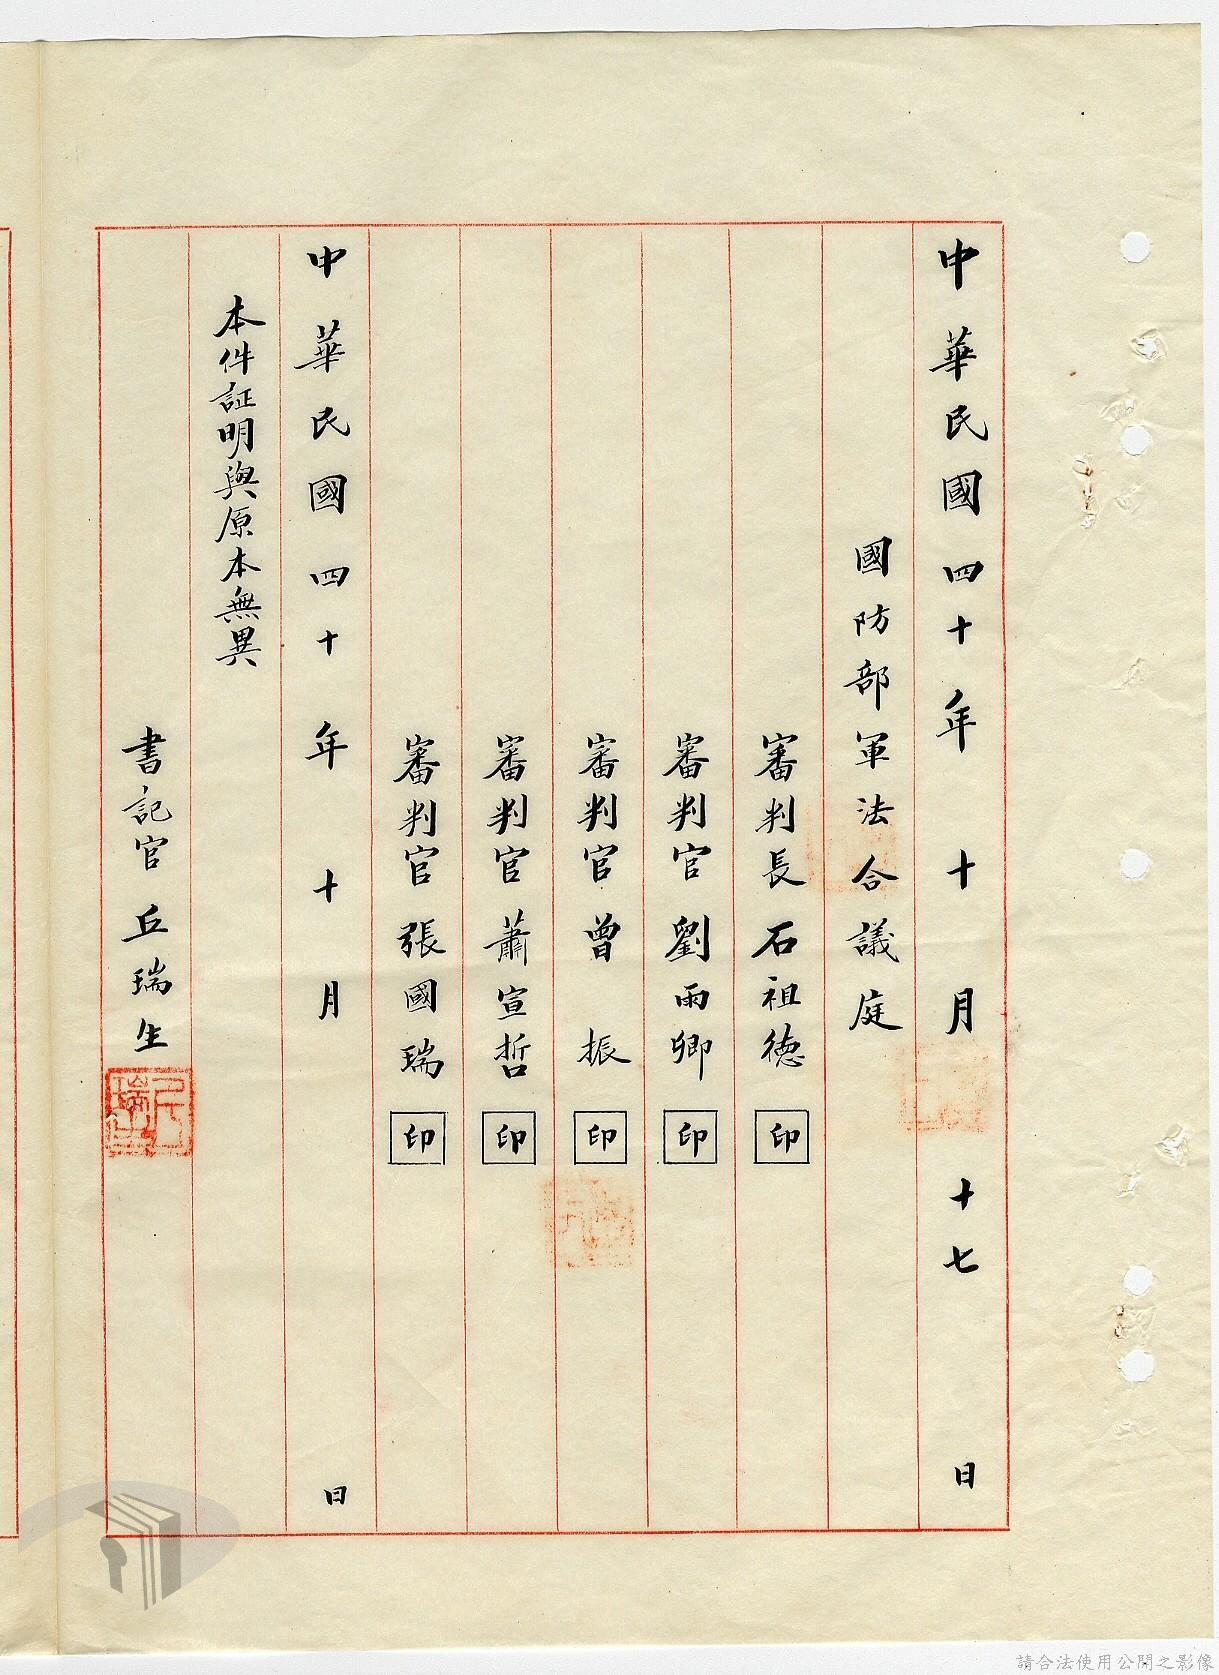 中華民國四十年十月十七日
國防部軍法合議庭
審判長石祖德印
審判官劉雨卿印
審判官曾振印
審判官蕭宣哲印
審判官張國瑞印
中華民國四十年十月 日
本件証明與原本無異
書記官丘瑞生
請合法使用公開之影像